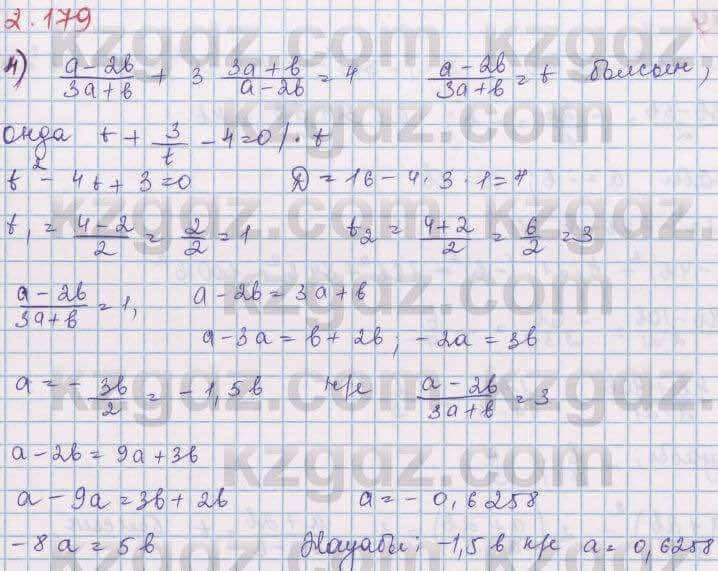 2.179
4) (a-2b)/(3a+b) + 3 (3a+b)/(a-2b) = 4 (a-2b)/(3a+b) = t болсын,
онда t + 3/t - 4 = 0 / · t
t² - 4t + 3 = 0 D = 16 - 4·3·1 = 4
t₁ = (4-2)/2 = 2/2 = 1 t₂ = (4+2)/2 = 6/2 = 3
(a-2b)/(3a+b) = 1, a - 2b = 3a + b
a - 3a = b + 2b; -2a = 3b
a = - 3b/2 = -1,5b н/е (a-2b)/(3a+b) = 3
a - 2b = 9a + 3b
a - 9a = 3b + 2b a = - 0,625b
-8a = 5b Жауабы: -1,5b н/е a = 0,625b
kzgdz.com